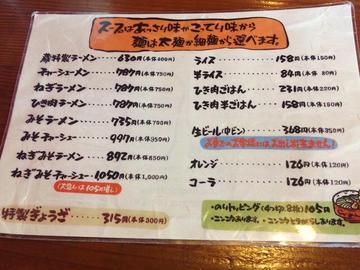 スープはあっさり味かこってり味から
麺は太麺か細麺から選べます。
蔵特製ラーメン‥‥630円(本体600円)
チャーシューメン‥‥787円(本体750円)
ねぎラーメン‥‥‥787円(本体750円)
ひき肉ラーメン‥‥787円(本体750円)
みそラーメン‥‥‥735円(本体700円)
みそチャーシュー‥‥997円(本体950円)
ねぎみそラーメン‥‥892円(本体850円)
ねぎみそチャーシュー1050円(本体1,000円)
(大盛りは105円増し)
特製ぎょうざ‥‥‥315円(本体300円)
ライス‥‥‥‥158円(本体150円)
半ライス‥‥‥84円(本体80円)
ひき肉ごはん‥‥231円(本体220円)
ひき肉半ごはん‥‥158円(本体150円)
生ビール(中ビン)‥368円(本体350円)
オレンジ‥‥‥‥126円(本体120円)
コーラ‥‥‥‥126円(本体120円)
・のりトッピング(4つ切、8枚)105円
・ニンニクあります。